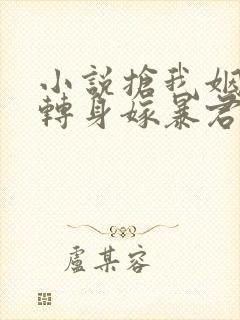 小說搶我姻
轉身嫁暴君
盧某容